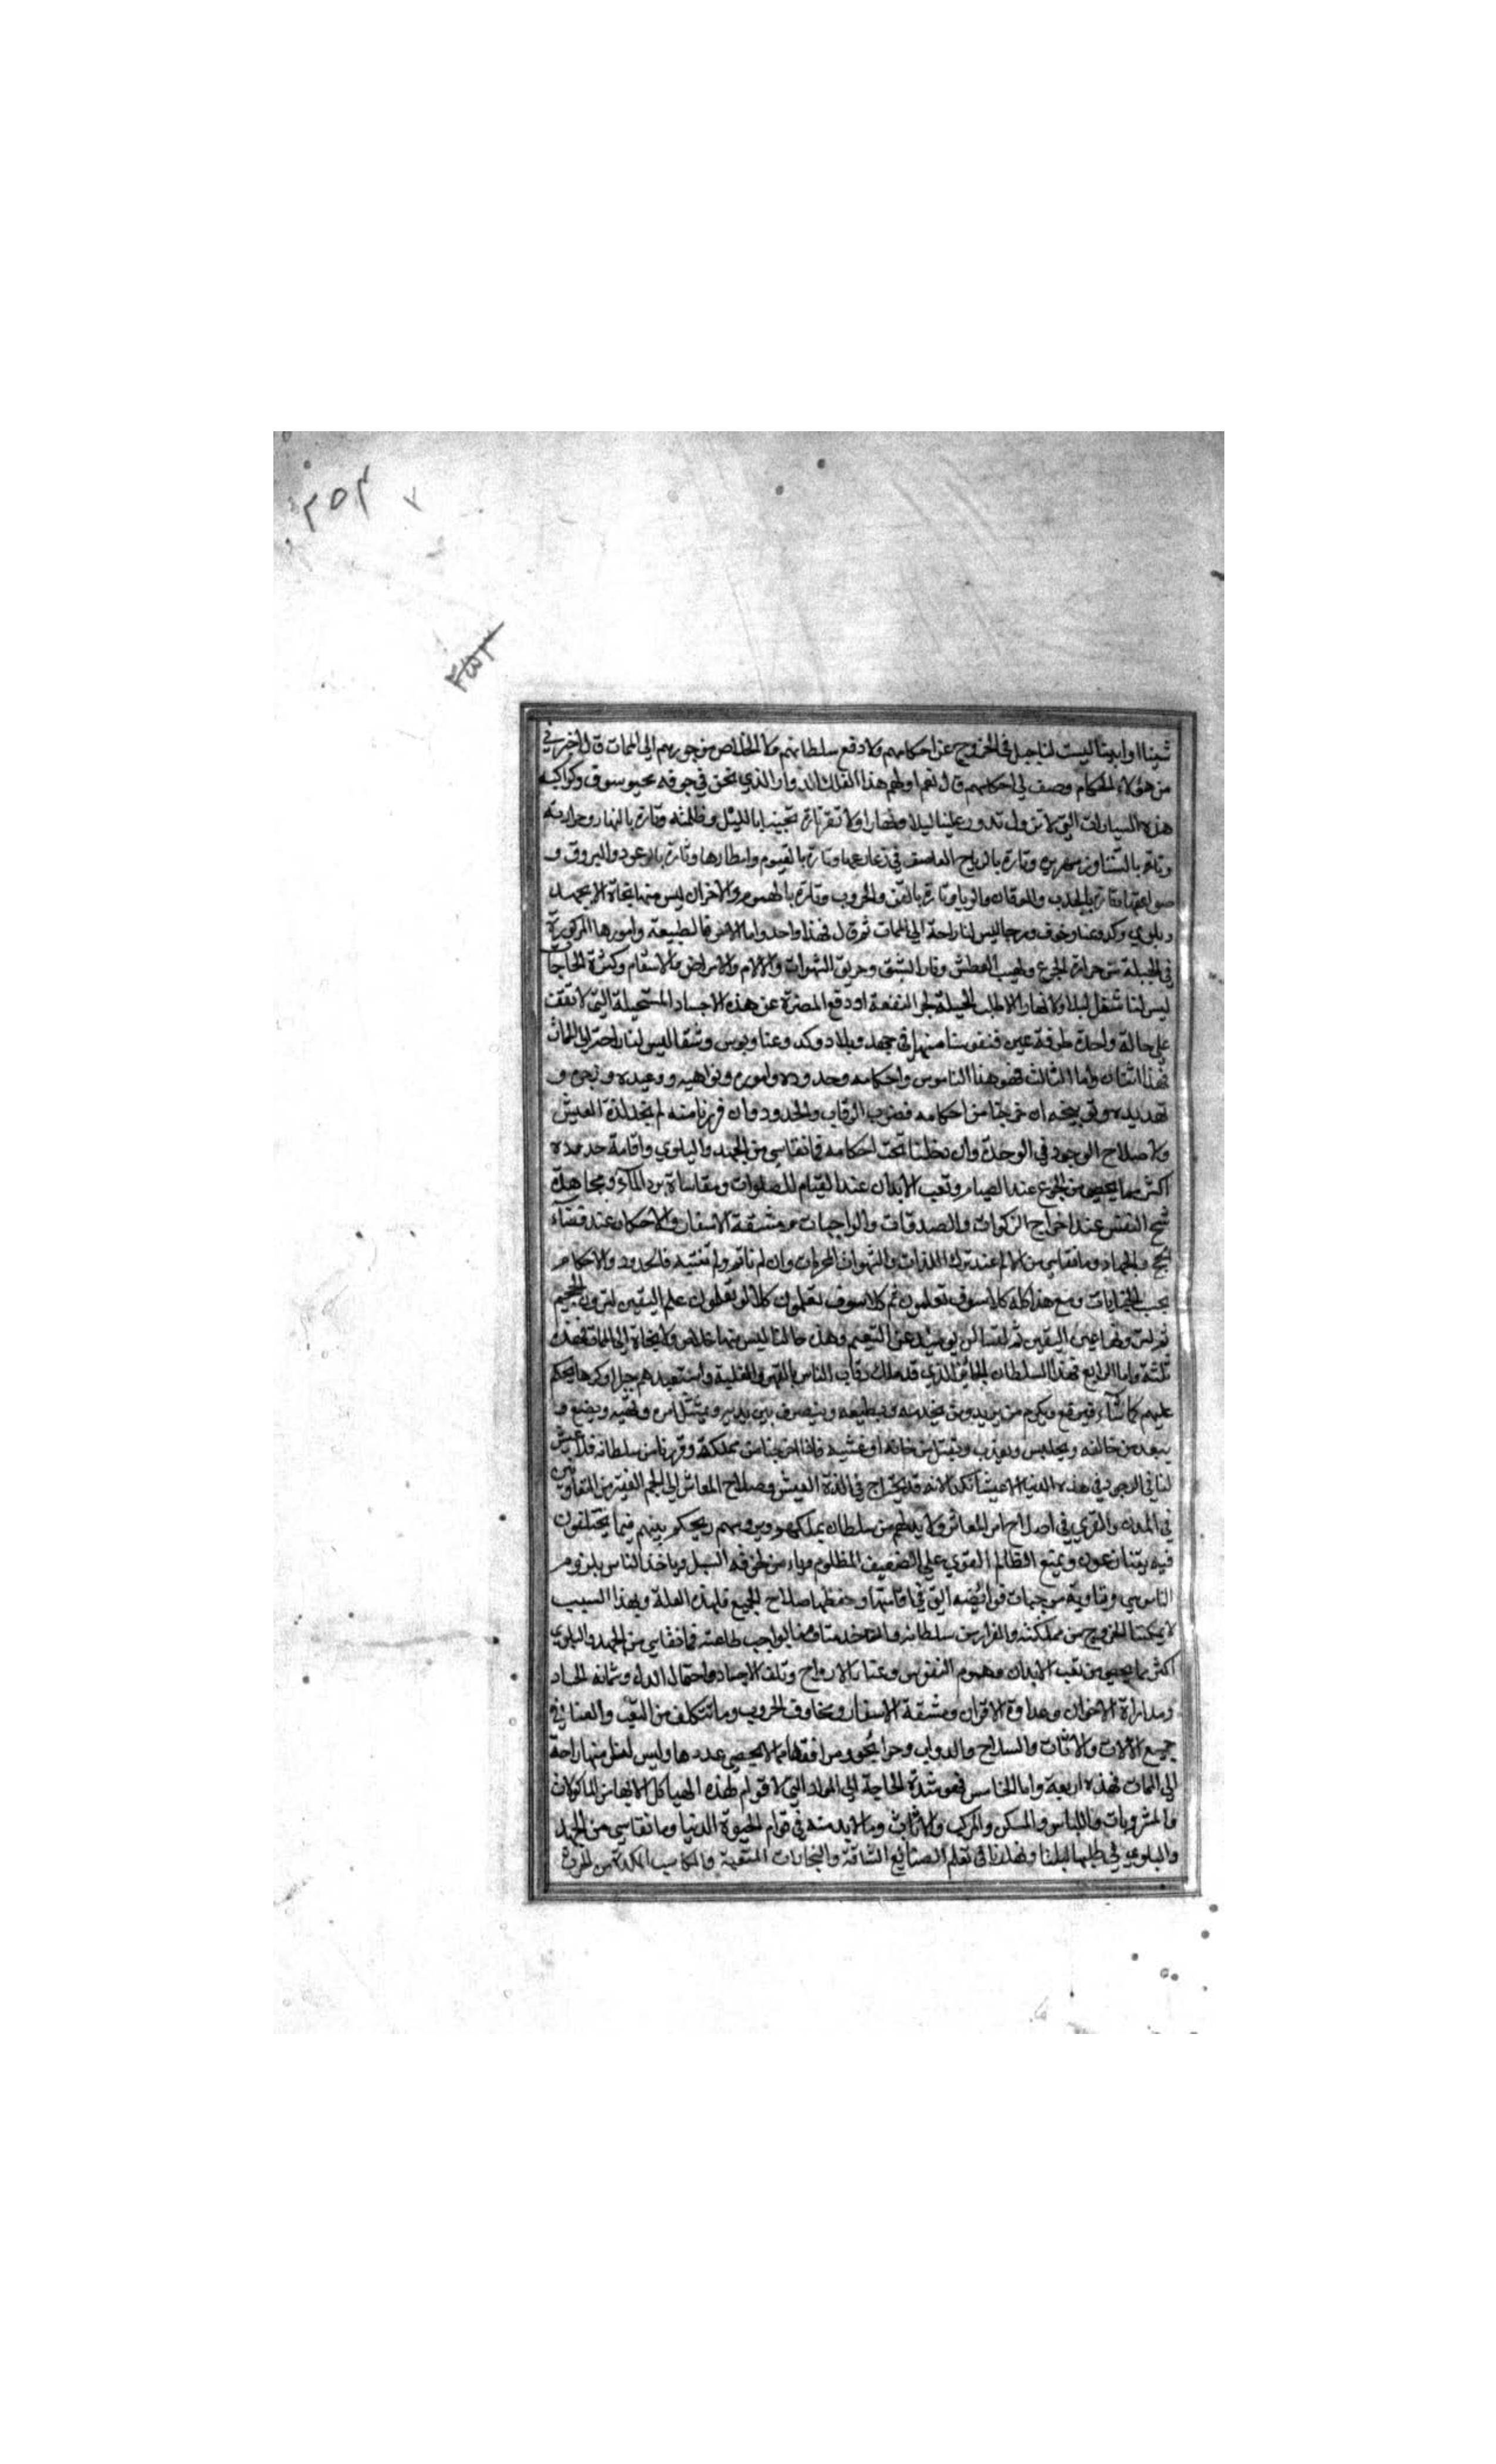 ٢٥٣
٢٥٢
شئنا او ابينا ليست لنا حيل في الخروج عن احكامهم ولا دفع سلطانهم ولا الخلاص من جورهم الي الممات قال اخبرني
من هؤلاء الحكام وصف لي احكامهم قال نعم اولهم هذا الفلك الدوار الذي نحن في جوفه محبوسون وكواكبه
هذه السيارات التي لا تزول تدور علينا ليلا ونهارا ولا تقر تارة تجيئنا بالليل وظلمته وتارة بالنهار وحرارته
وتارة بالشتا وزمهريره وتارة بالرياح العاصف في زعازعها وتارة بالغيوم وامطارها وتارة بالرعود والبروق و
صواعقها وتارة بالجدب والموتان والوبا وتارة بالفتن والحروب وتارة بالهموم والاحزان ليس منها نجاة الا بجهد
وبلوي وكد وعنا وخوف ورجا ليس لنا راحة الي الممات ثم قال فهذا واحد واما الاخر فالطبيعة وامورها المركوزة
في الجبلة من حرارة الجوع ولهيب العطش ونار الشبق وحريق الشهوات والالام والامراض والاسقام وكثرة الحاجات
ليس لنا شغل ليلا ولا نهارا الا طلب الحيلة لجر المنفعة او دفع المضرة عن هذه الاجساد المستحيلة التي لا تقف
علي حالة واحدة طرفة عين فنفوسنا منها في جهد وبلاء وكد وعنا وبوس وشقا ليس لنا راحة الي الممات
فهذا اثنان واما الثالث فهو هذا الناموس واحكامه وحدوده واموره ونواهيه ووعيده وزجره و
تهديده وتوبيخه ان خرجنا من احكامه فضرب الرقاب والحدود وان فررنا منه لم نجد لذة العيش
ولا صلاح الوجود في الوحدة وان دخلنا تحت احكامه فما نقاسي من الجهد والبلوي واقامة حدوده
اكثر مما يحصي من الجوع عند الصيام وتعب الابدان عند القيام للصلوات ومقاساة برد الماء ومجاهدة
شح النفس عند اخراج الزكوات والصدقات والواجبات ومشقة الاسفار والاحكام عند قضاء
الحج والجهاد وما نقاسي من الالم عند ترك اللذات والشهوات المحرمات وان لم ناتمر ولم ننته فالحدود والاحكام
بحسب الجنايات ومع هذا كله كلا سوف تعلمون ثم كلا سوف تعلمون كلا لو تعلمون علم اليقين لترون الجحيم
ثم لترونها عين اليقين ثم لتسالن يومئذ عن النعيم وهذه حالنا ليس منها خلاص ولا نجاة الي الممات فهذه
ثلثة واما الرابع فهذا السلطان الجائر الذي قد ملك رقاب الناس بالقهر والغلبة واستعبدهم جبرا وكرها يحكم
عليهم كما شاء فيرفع ويكرم من يريد ومن يخدمه ويطيعه ويتصرف بين يديه ويمتثل امره ونهيه ويضع و
يبعد من خالفه ويحبس ويعذب ويقتل من خانه او غشه فاذا خرجنا من مملكته وفررنا من سلطانه فلا عيش
لنا في الوجود في هذه الدنيا الا عيشا نكدا لانه قد يحتاج في لذة العيش وصلاح المعاش الي الجم الغفير من المتعاونين
في المدن والقري في اصلاح امر المعاش ولا بد لهم من سلطان يملكهم ويروسهم ويحكم بينهم فيما يختلفون
فيه يتنازعون ويمنع الظالم القوي علي الضعيف المظلوم ويامن من خوفه السبل وياخذ الناس بلزوم
الناموس وتادية موجبات فرائضه التي في اقامتها وحفظها صلاح الجميع فلهذه العلة وبهذا السبب
لا يمكننا الخروج من مملكته والفرار من سلطانه وما نقاسي من الجهد والبلوي
اكثر مما يحصي من تعب الابدان وهموم النفوس وعنا الارواح وتلف الاجساد واحتمال الذل وشماتة الحساد
ومداراة الاخوان وعداوة الاقران ومشقة الاسفار ومخاوف الحروب وما نتكلف من التعب والعنا في
جميع الالات والاثاث والسلاح والدواب ومرافقها مما لا يحصي عددها وليس لنا منها راحة
الي الممات فهذه اربعة واما الخامس فهو شدة الحاجة الي المواد التي لا قوام لهذه الهياكل الا بها من الماكولات
والمشروبات واللباس والمسكن والمركب والاثاث وما لا بد منه في قوام الحيوة الدنيا وما نقاسي من الجهد
والبلوي في طلبها ليلنا ونهارنا في تعلم الصنائع الشاقة والتجارات المتعبة والمكاسب الكدة من الحرث